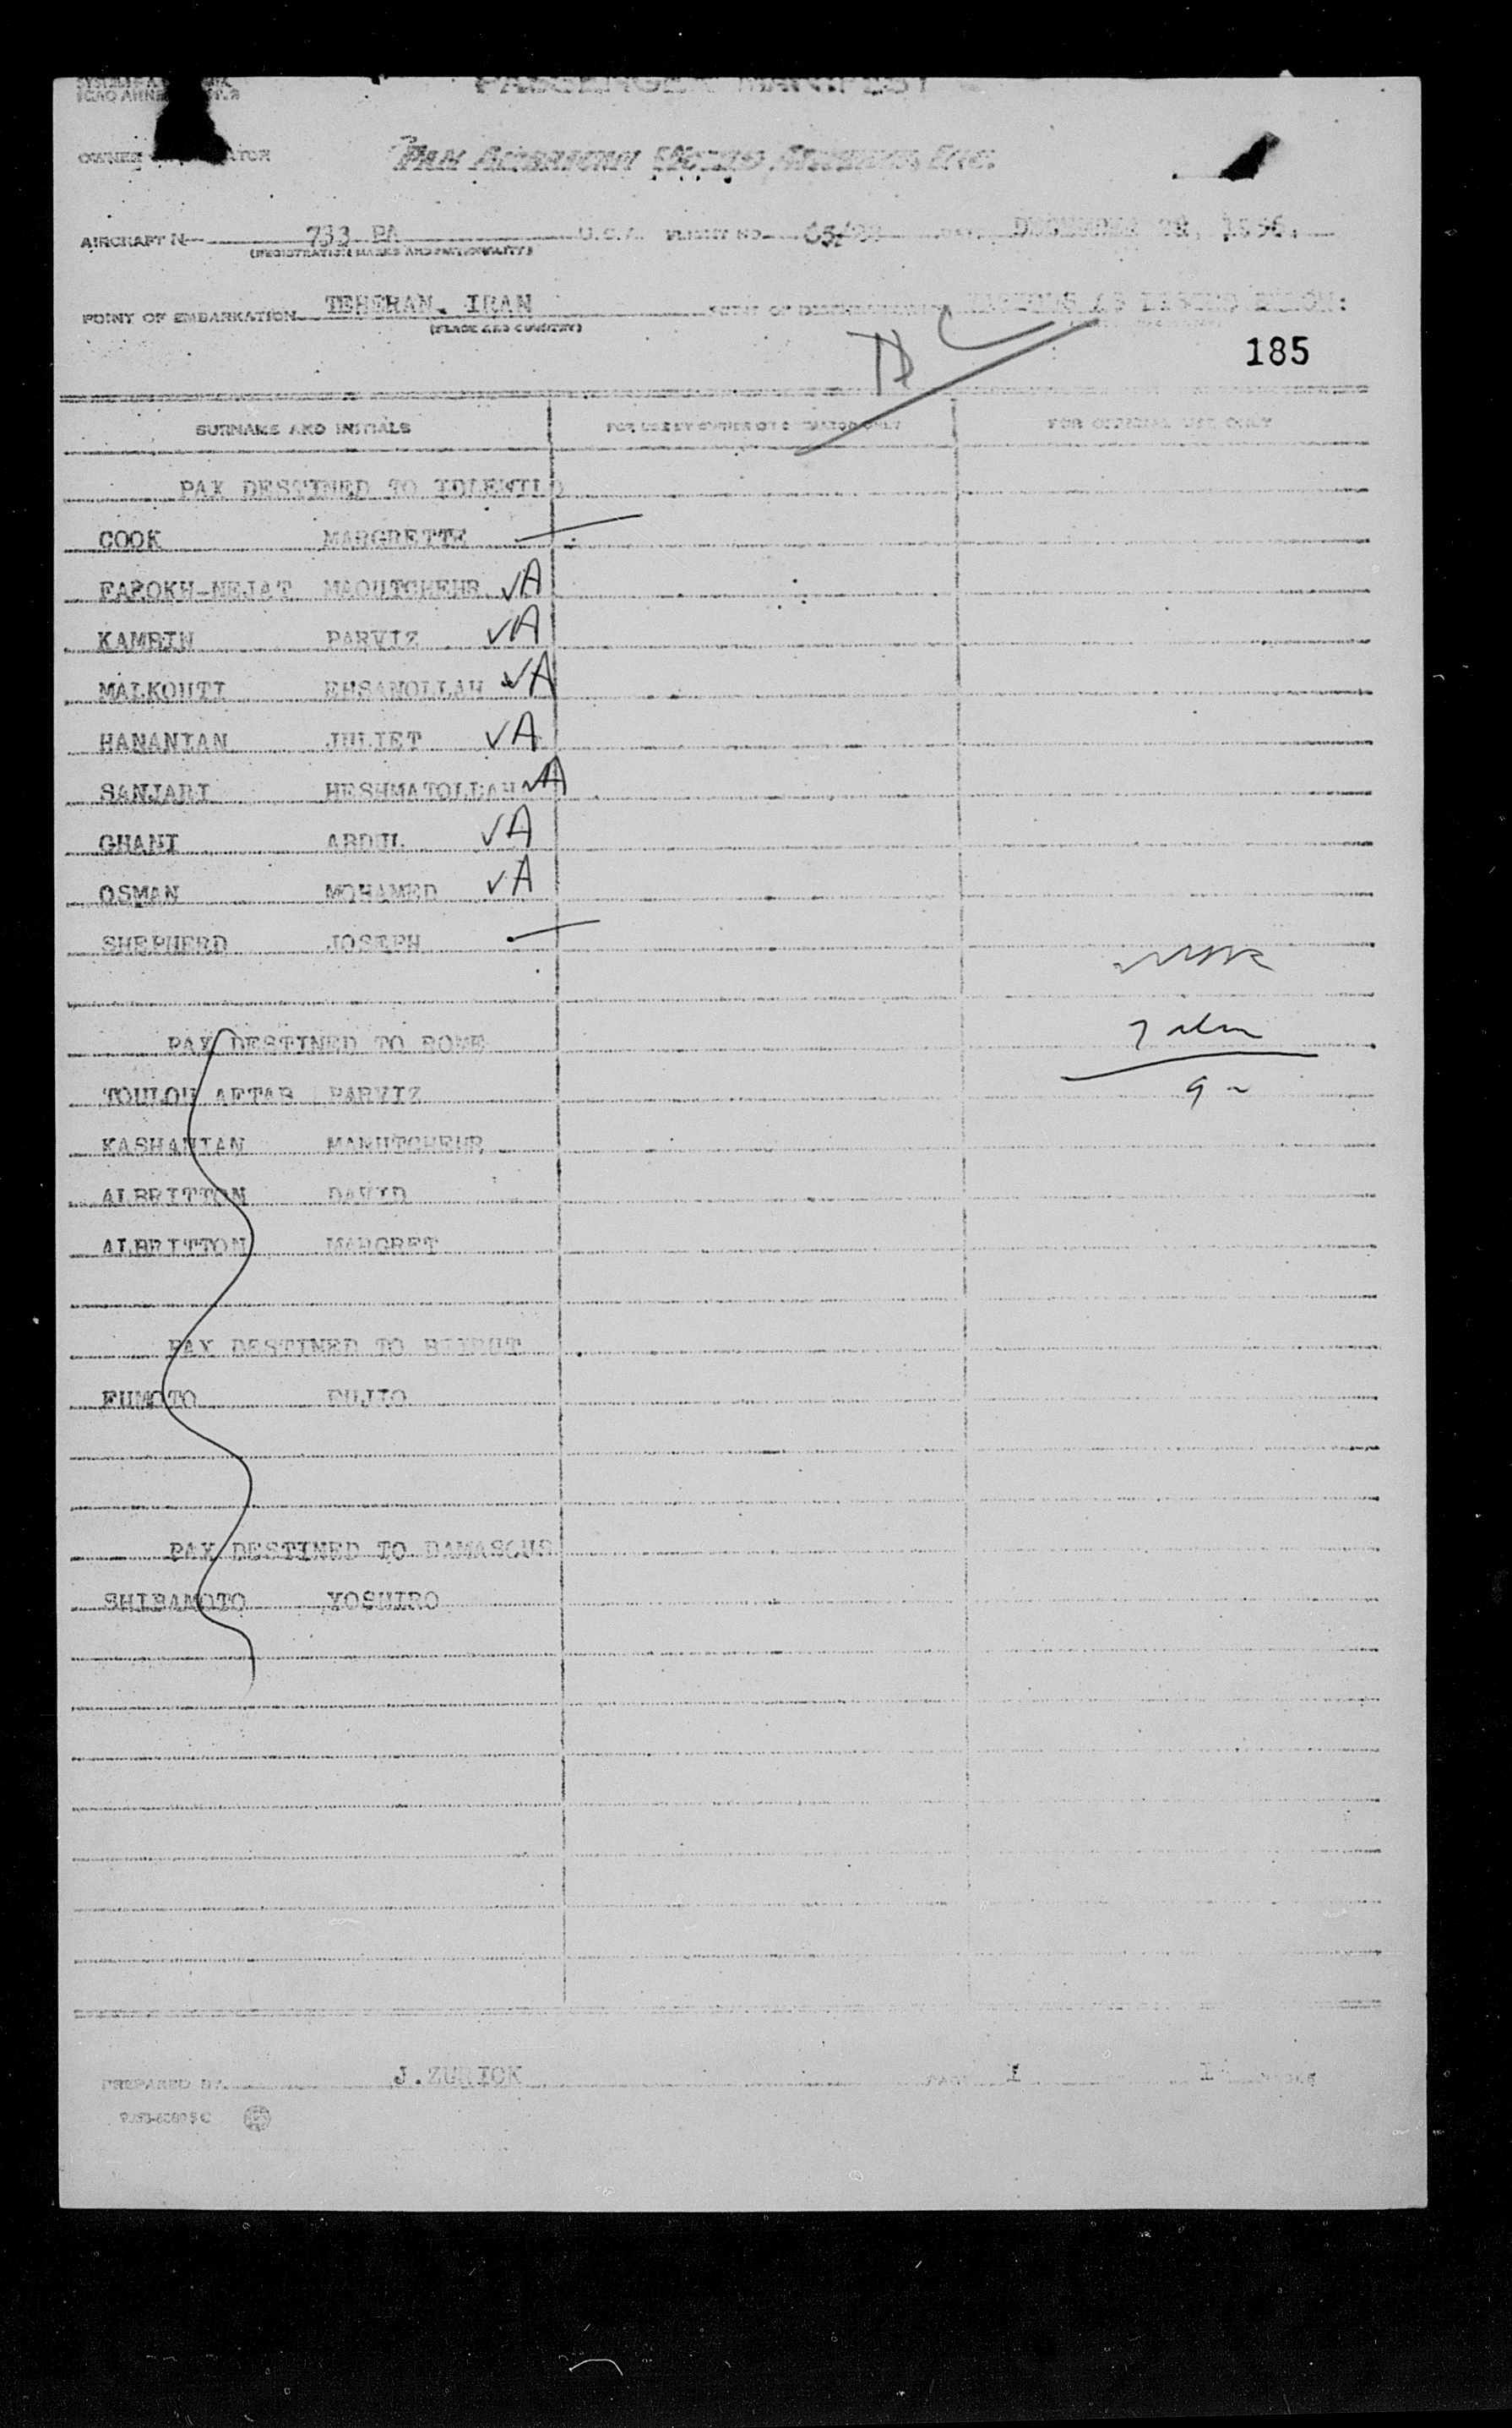 PASSENGER MANIFEST
ICAO ANNE
OWNER
PAN AMERICAN WORLD AIRWAYS, INC.
AIRCRAFT N 733 PA U.S.A. FLIGHT NO. DECEMBER
(REGISTRATION MARKS AND NATIONALITY)
POINT OF EMBARKATION TEHERAN. IRAN POINT OF DISEMBARKATION VARIOUS AS LISTED BELOW:
(PLACE AND COUNTRY)
185
SURNAME AND INITIALS FOR USE BY OWNER OR OPERATOR ONLY FOR OFFICIAL USE ONLY
PAX DESTINED TO IDLEWILD
COOK MARGRETTE
FAROKH-NEJAT MAOUTCHEHR ✓A
KAMBIN PARVIZ ✓A
MALKOUTI EHSANOLLAH ✓A
HANANIAN JULIET ✓A
SANJARI HESHMATOLLAH ✓A
GHANI ABDUL ✓A
OSMAN MOHAMED ✓A
SHEPHERD JOSEPH
PAX DESTINED TO ROME
7 alm
TOULOU AFTAB PARVIZ
9
KASHANIAN MANUTCHEHR
ALBRITTON DAVID
ALBRITTON MARGRET
PAX DESTINED TO BEIRUT
FUMOTO FUJIO
PAX DESTINED TO DAMASCUS
SHIBAMOTO YOSHIRO
PREPARED BY J.ZURICK PAGE 1 1